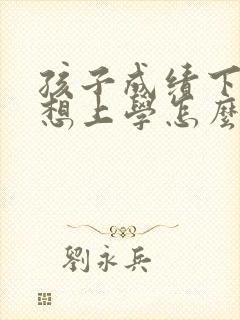 孩子成绩下
想上學怎麼
劉永兵